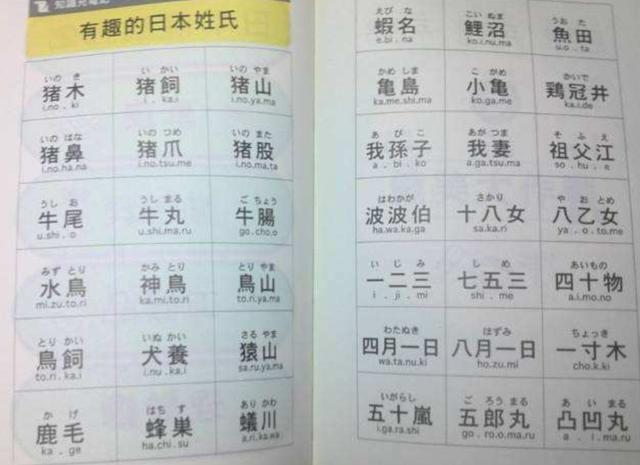 知識充電站
有趣的日本姓氏
いの き いの かい いの やま
猪木 猪飼 猪山
i.no.ki i.kai i.no.ya.ma
いの はな いの つめ いの また
猪鼻 猪爪 猪股
i.no.ha.na i.no.tsu.me i.no.ma.ta
うし お うし まる ご ちょう
牛尾 牛丸 牛腸
u.shi.o u.shi.ma.ru go.cho.o
みず とり かみ とり とり やま
水鳥 神鳥 鳥山
mi.zu.to.ri ka.mi.to.ri to.ri.ya.ma
とり かい いぬ かい さる やま
鳥飼 犬養 猿山
to.ri.ka.i i.nu.ka.i sa.ru.ya.ma
か げ はち す あり かわ
鹿毛 蜂巣 蟻川
ka.ge ha.chi.su a.ri.ka.wa
え び な こい ぬま うお た
蝦名 鯉沼 魚田
e.bi.na ko.i.nu.ma u.o.ta
かめ しま こ がめ かいで
亀島 小亀 鶏冠井
ka.me.shi.ma ko.ga.me ka.i.de
あ び こ あが つま そ ふ え
我孫子 我妻 祖父江
a.bi.ko a.ga.tsu.ma so.hu.e
はわかが さかり や お とめ
波波伯 十八女 八乙女
ha.wa.ka.ga sa.ka.ri ya.o.to.me
い じ み し め あいもの
一二三 七五三 四十物
i.ji.mi shi.me a.i.mo.no
わたぬき はずみ ちょっき
四月一日 八月一日 一寸木
wa.ta.nu.ki ho.zu.mi cho.k.ki
いがらし ご ろう まる あ い まる
五十嵐 五郎丸 凸凹丸
i.ga.ra.shi go.ro.o.ma.ru a.i.ma.ru